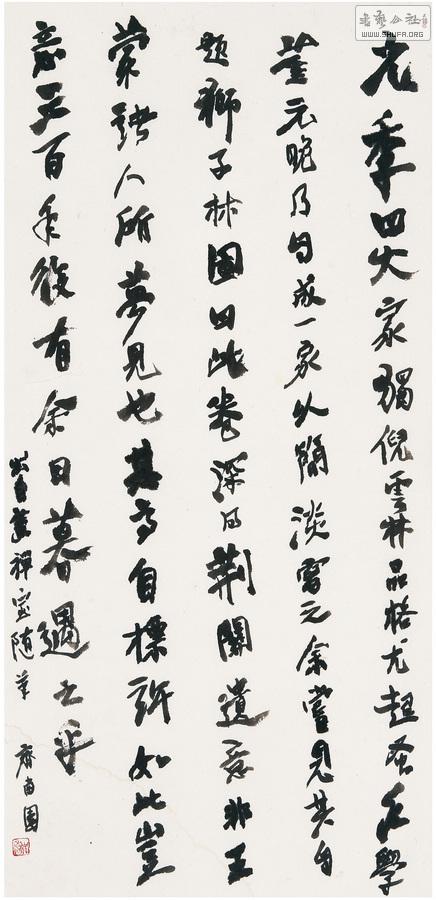 元季四大家獨倪雲林品格尤超蚤年學
董元晚乃自成一家以簡淡為之余嘗見其自
題獅子林圖曰此卷深得荊關遺意非王
蒙諸人所夢見也其高自標許如此豈
意三百年後有余旦暮遇之乎
出自畫禪室隨筆
書藝公社
WWW.SHUFA.ORG